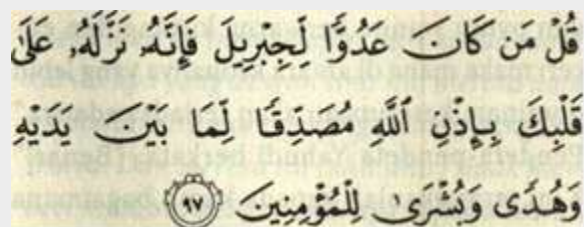 قُلْ مَن كَانَ عَدُوًّا لِّجِبْرِيلَ فَإِنَّهُۥ نَزَّلَهُۥ عَلَىٰ
قَلْبِكَ بِإِذْنِ ٱللَّهِ مُصَدِّقًا لِّمَا بَيْنَ يَدَيْهِ
وَهُدًى وَبُشْرَىٰ لِلْمُؤْمِنِينَ ٩٧